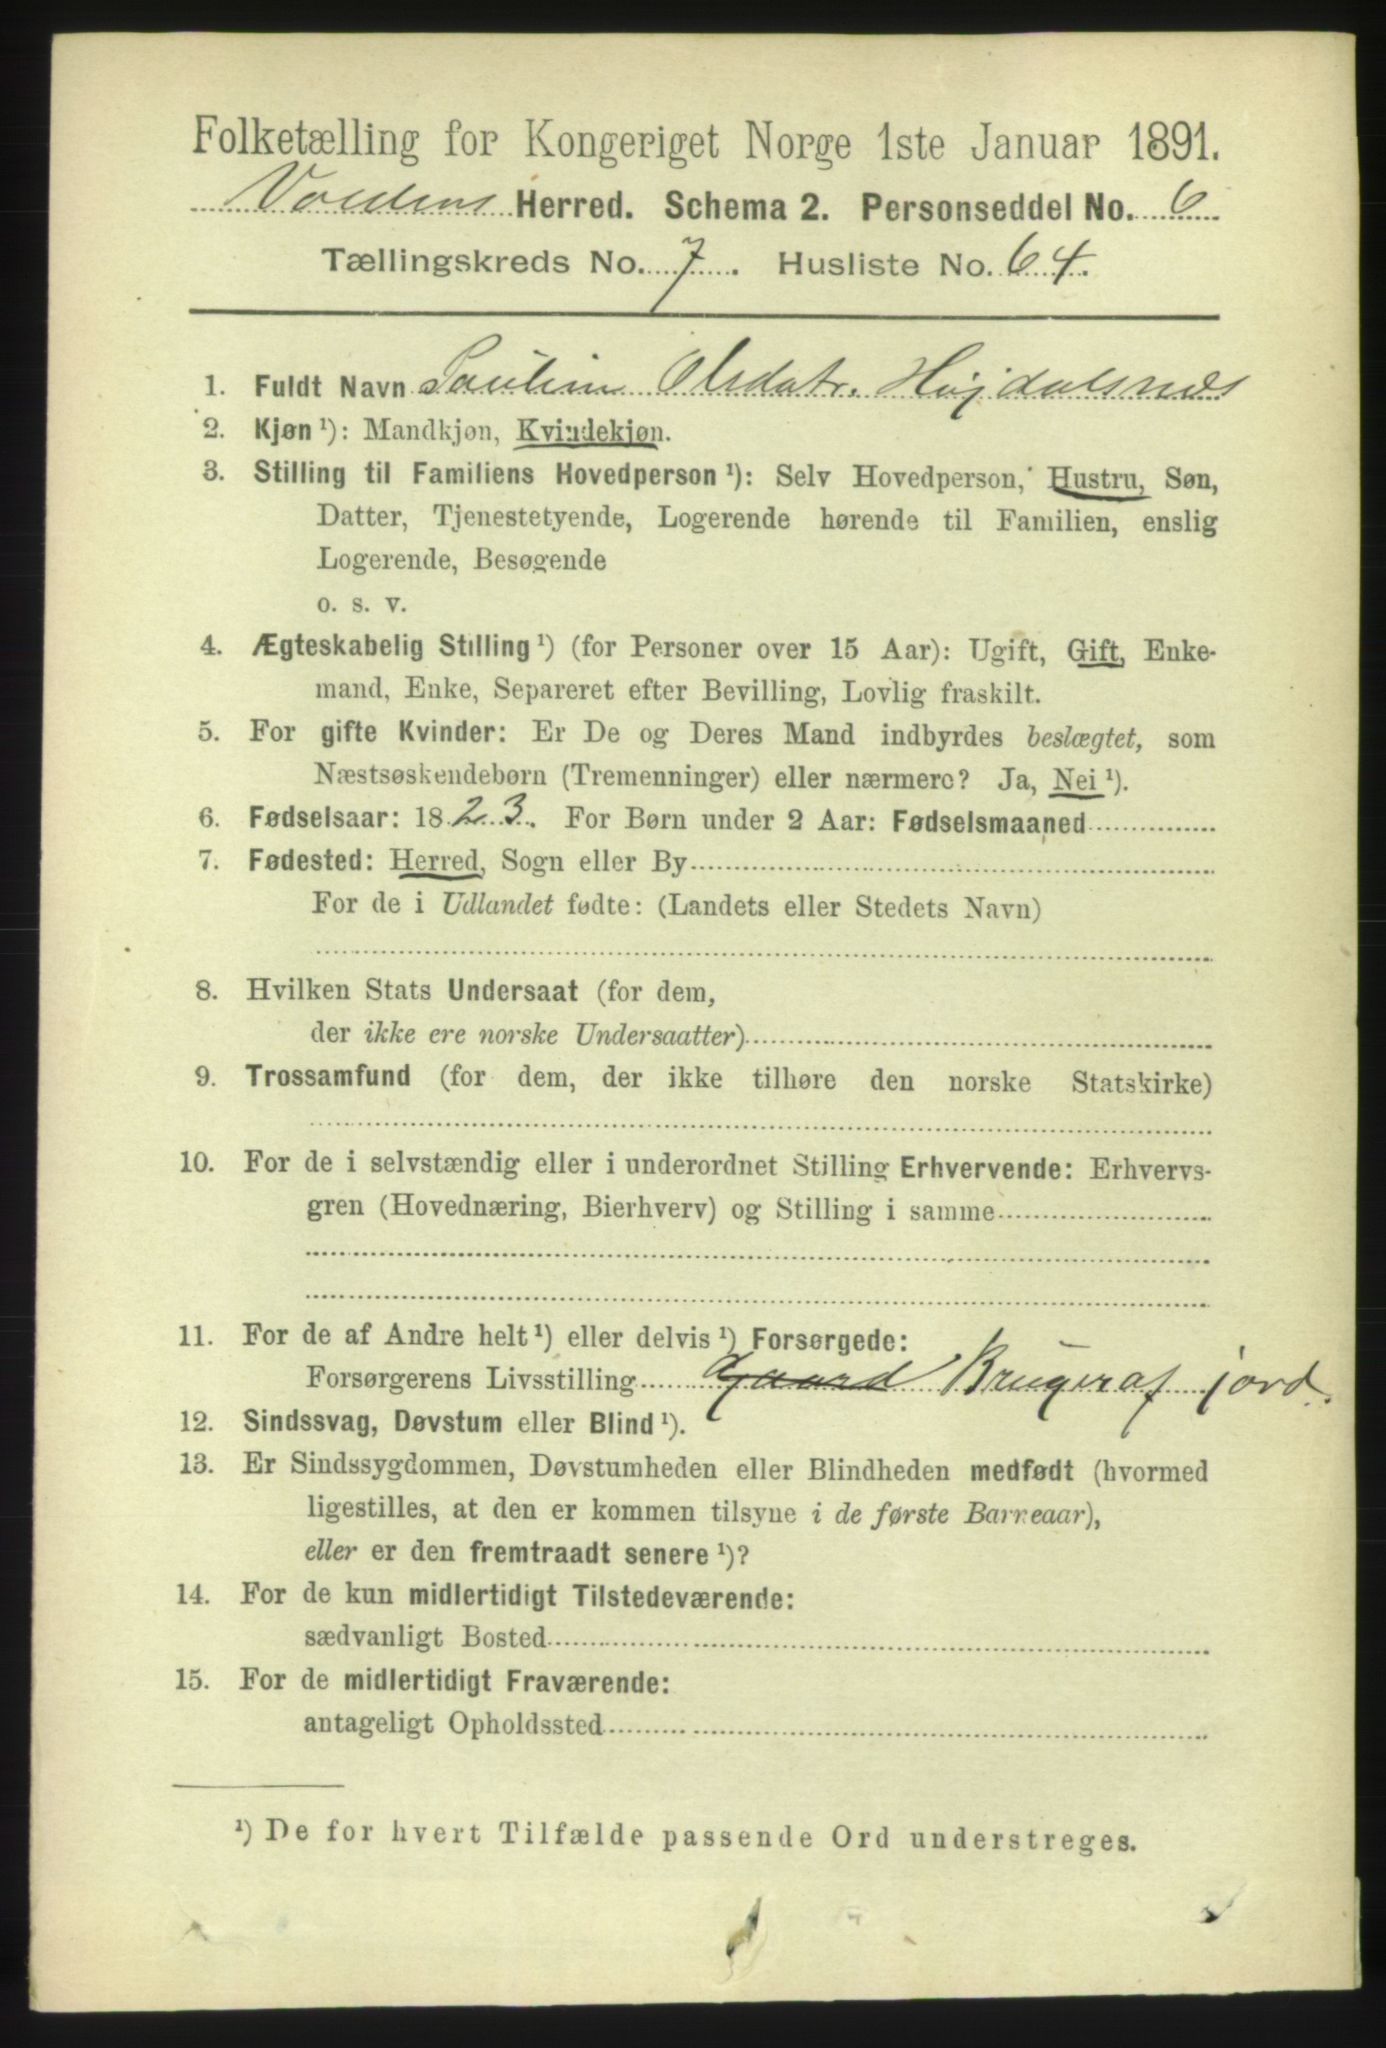 Folketælling for Kongeriget Norge 1ste Januar 1891.
Voldens Herred. Schema 2. Personseddel No. 6
Tællingskreds No. 7. Husliste No. 64.
1. Fuldt Navn Pauline Olsdatr. Højdalsnæs
2. Kjøn ¹): Mandkjøn, Kvindekjøn.
3. Stilling til Familiens Hovedperson ¹): Selv Hovedperson, Hustru, Søn,
Datter, Tjenestetyende, Logerende hørende til Familien, enslig
Logerende, Besøgende
o. s. v.
4. Ægteskabelig Stilling ¹) (for Personer over 15 Aar): Ugift, Gift, Enke-
mand, Enke, Separeret efter Bevilling, Lovlig fraskilt.
5. For gifte Kvinder: Er De og Deres Mand indbyrdes beslægtet, som
Næstsøskendebørn (Tremenninger) eller nærmere? Ja, Nei ¹).
6. Fødselsaar: 1823. For Børn under 2 Aar: Fødselsmaaned
7. Fødested: Herred, Sogn eller By
For de i Udlandet fødte: (Landets eller Stedets Navn)
8. Hvilken Stats Undersaat (for dem,
der ikke ere norske Undersaatter)
9. Trossamfund (for dem, der ikke tilhøre den norske Statskirke)
10. For de i selvstændig eller i underordnet Stilling Erhvervende: Erhvervs-
gren (Hovednæring, Bierhverv) og Stilling i samme
11. For de af Andre helt ¹) eller delvis ¹) Forsørgede:
Forsørgerens Livsstilling Gaard Bruger af jord.
12. Sindssvag, Døvstum eller Blind ¹).
13. Er Sindssygdommen, Døvstumheden eller Blindheden medfødt (hvormed
ligestilles, at den er kommen tilsyne i de første Barneaar),
eller er den fremtraadt senere ¹)?
14. For de kun midlertidigt Tilstedeværende:
sædvanligt Bosted
15. For de midlertidigt Fraværende:
antageligt Opholdssted
¹) De for hvert Tilfælde passende Ord understreges.